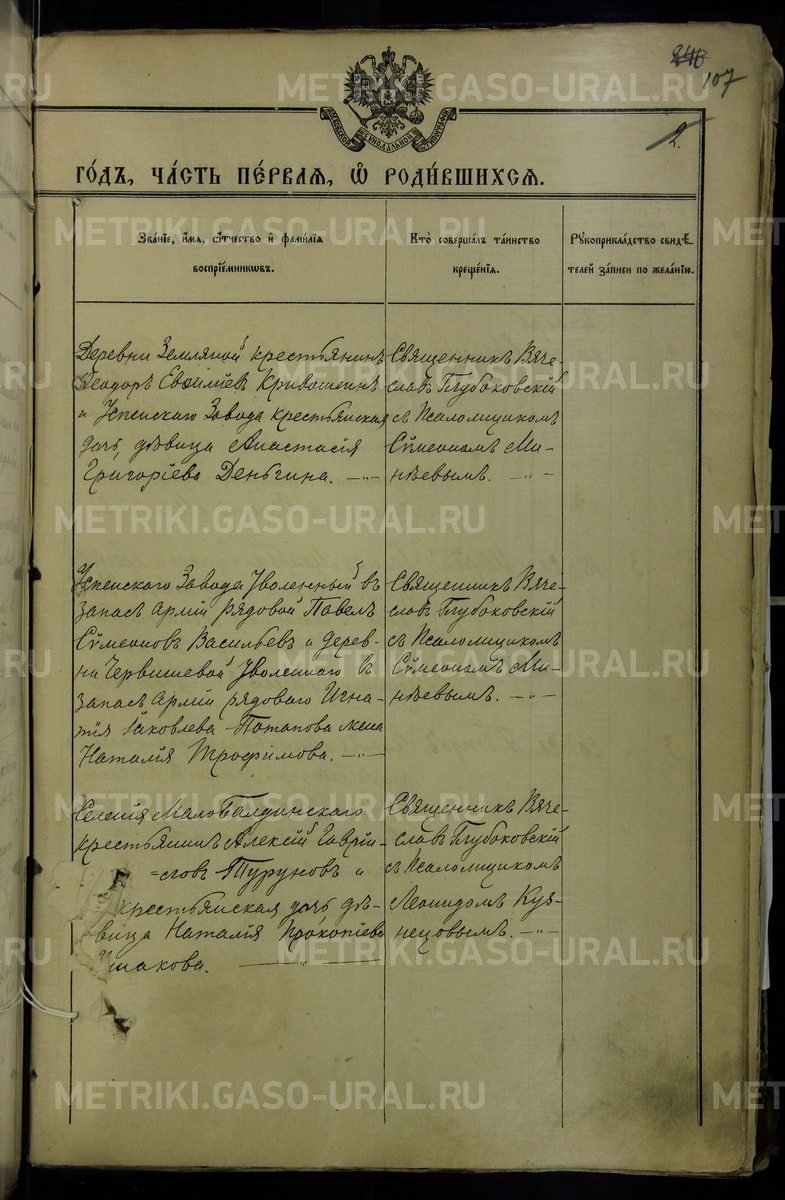 246
107
МОСКОВСКОЙ СѴНОДАЛЬНОЙ ТИПОГРАФІИ
2.
ГО́ДЪ, ЧА́СТЬ ПЕ́РВАѦ, Ѡ҆ РОДИ́ВШИХСѦ.
Зва́нїе, и҆́мѧ, ѻ҆́тчество и҆ фами́лїѧ
воспрїе́мникѡвъ.
Кто̀ соверша́лъ та́инство
креще́нїѧ.
Рꙋкоприкла́дство свидѣ́-
телей за́писи по жела́нїю.
Деревни Земляной крестьянинъ
Ѳеодоръ Евѳиміевъ Кривошеинъ
и Успенскаго Завода крестьянская
дочь, дѣвица Анастасія
Григоріева Деньгина. —"—
Священникъ Вяче-
славъ Глубоковскій
съ Псаломщикомъ
Сѵмеономъ Ми-
нѣевымъ. —"—
Успенскаго Завода Уволенный въ
запасъ арміи рядовой Павелъ
Сѵмеоновъ Васильевъ и дерев-
ни Червишевой Уволеннаго въ
запасъ арміи рядоваго Игна-
тія Іаковлева Потапова жена
Наталія Трофимова. —"—
Священникъ Вяче-
славъ Глубоковскій
съ Псаломщикомъ
Сѵмеономъ Ми-
нѣевымъ. —"—
Селенія Малобалдинскаго
крестьянинъ Алексій Гаврі-
=ловъ Туруновъ и
крестьянская дочь дѣ-
вица Наталія Прокопіева
Ушакова. —"—
Священникъ Вяче-
славъ Глубоковскій
съ Псаломщикомъ
Леонидомъ Куз-
нецовымъ. —"—
METRIKI.GASO-URAL.RU